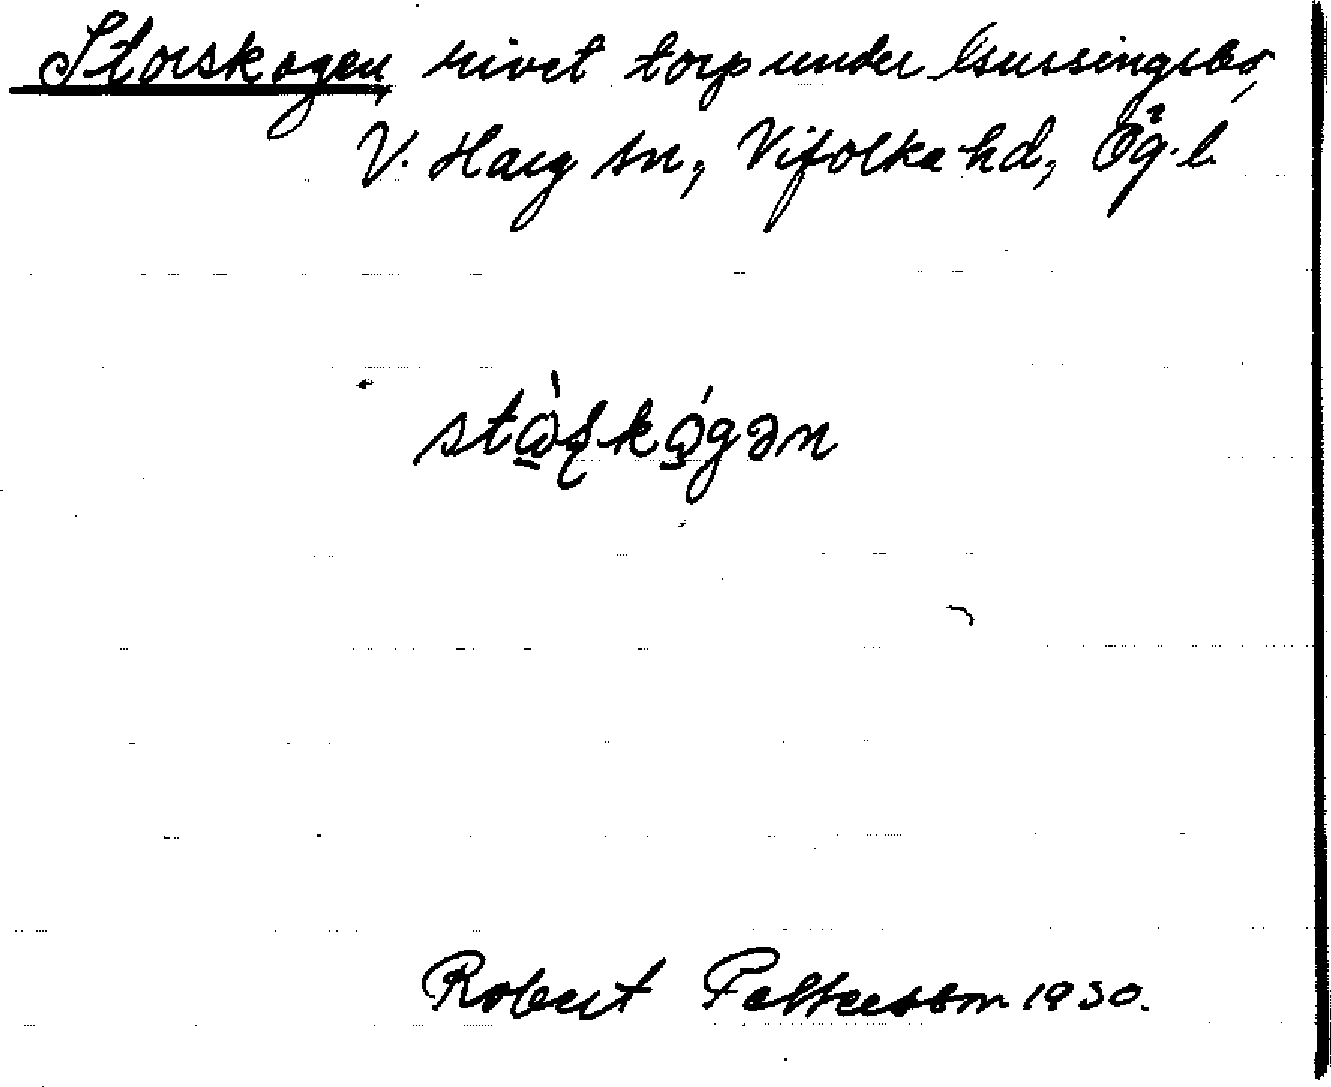 Storskogen, rivet torp under Gussingsbo,
V. Harg sn, Vifolka hd, Ög. l.
stὼʂkǫ́gən
Robert Pettersson 1930.